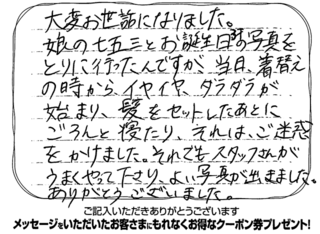 大変お世話になりました。
娘の七五三とお誕生日の写真を
とりに行ったんですが、当日、着替え
の時から、イヤイヤ、ダラダラが
始まり、髪をセットしたあとに
ごろんと寝たり、それは、ご迷惑
をかけました。それでもスタッフさんが
うまくやって下さり、よい写真が出きました。
ありがとうございました。
ご記入いただきありがとうございます
メッセージをいただいたお客さまにもれなくお得なクーポン券プレゼント!